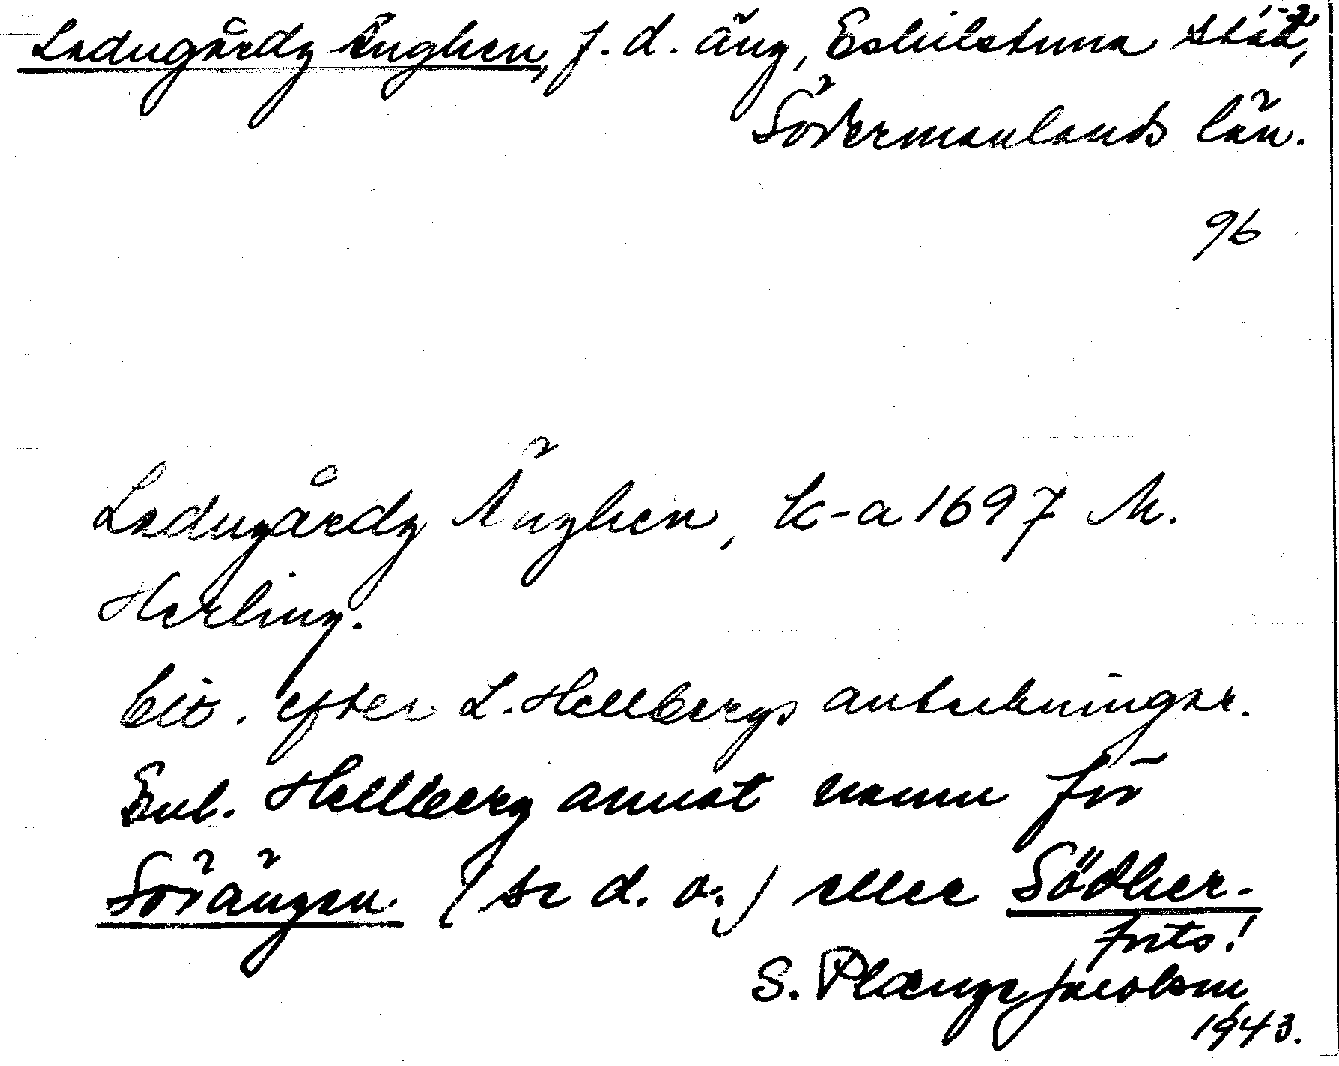 Ladugårdz Änghen, f.d. äng, Eskilstuna stad,
Södermanlands län.
96
Ladugårdz Änghen, k-a 1697 M.
Herling.
Cit. efter L. Hellbergs anteckningar.
Enl. Hellberg annat namn för
Sörängen (se d.o.) eller Södher-
forts!
S. Plænge Jacobson
1943.